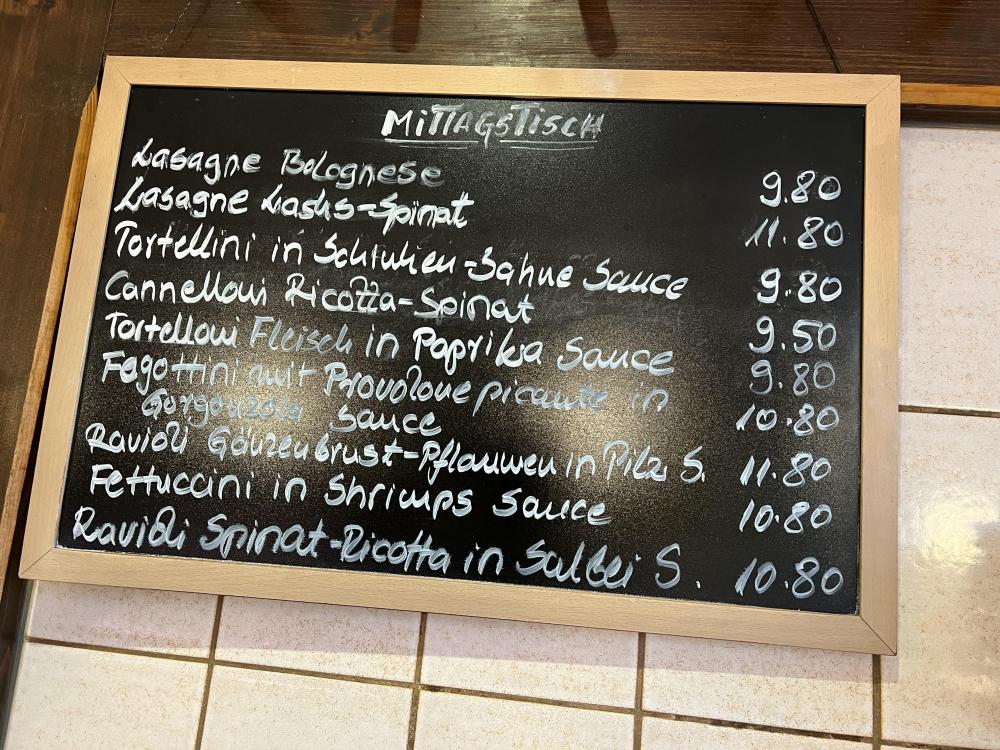 MITTAGSTISCH
Lasagne Bolognese 9.80
Lasagne Lachs-Spinat 11.80
Tortellini in Schinken-Sahne Sauce 9.80
Cannelloni Ricotta-Spinat 9.50
Tortelloni Fleisch in Paprika Sauce 9.80
Fagottini mit Provolone picante in 10.80
Gorgonzola Sauce
Ravioli Gänzenbrust-Pflaumen in Pilz S. 11.80
Fettuccini in Shrimps Sauce 10.80
Ravioli Spinat-Ricotta in Salbei S. 10.80